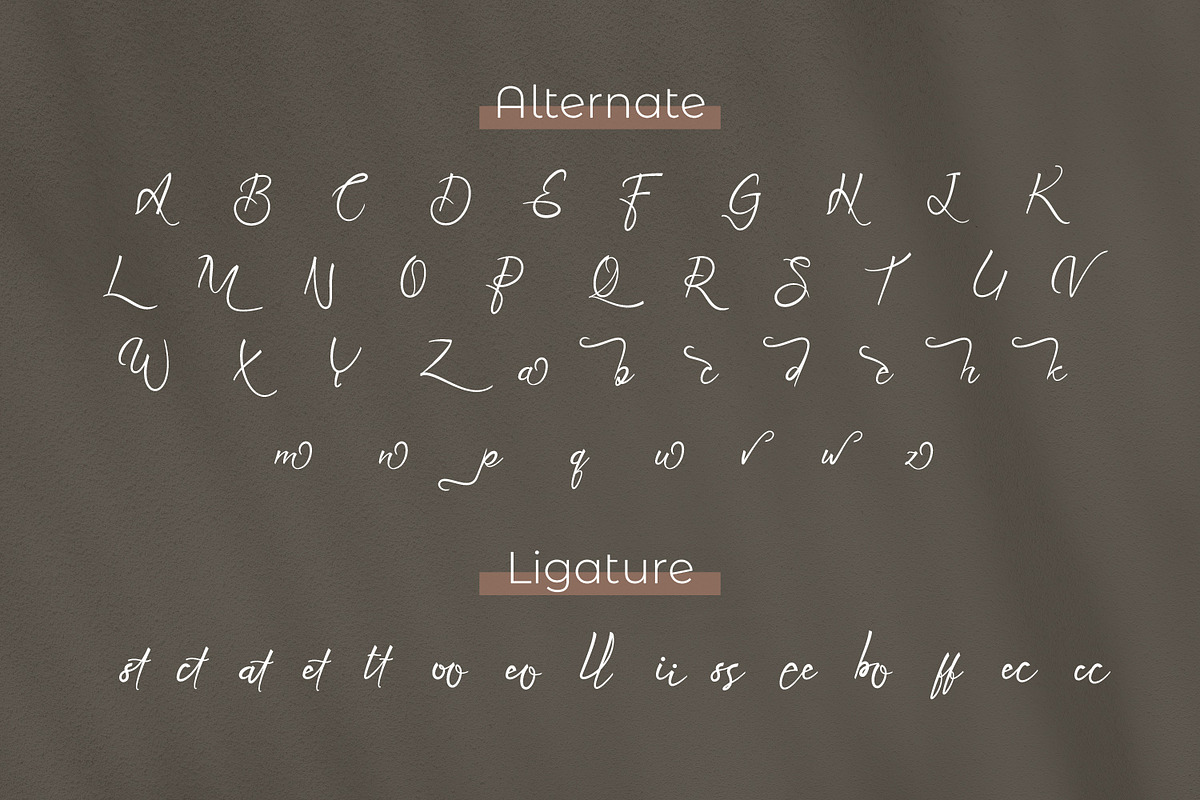 Alternate
A B C D E F G H I K
L M N O P Q R S T U V
W X Y Z a b c d e h k
m n p q u v w z
Ligature
st ct at et tt oo eo ll ii ss ee bo ff ec cc